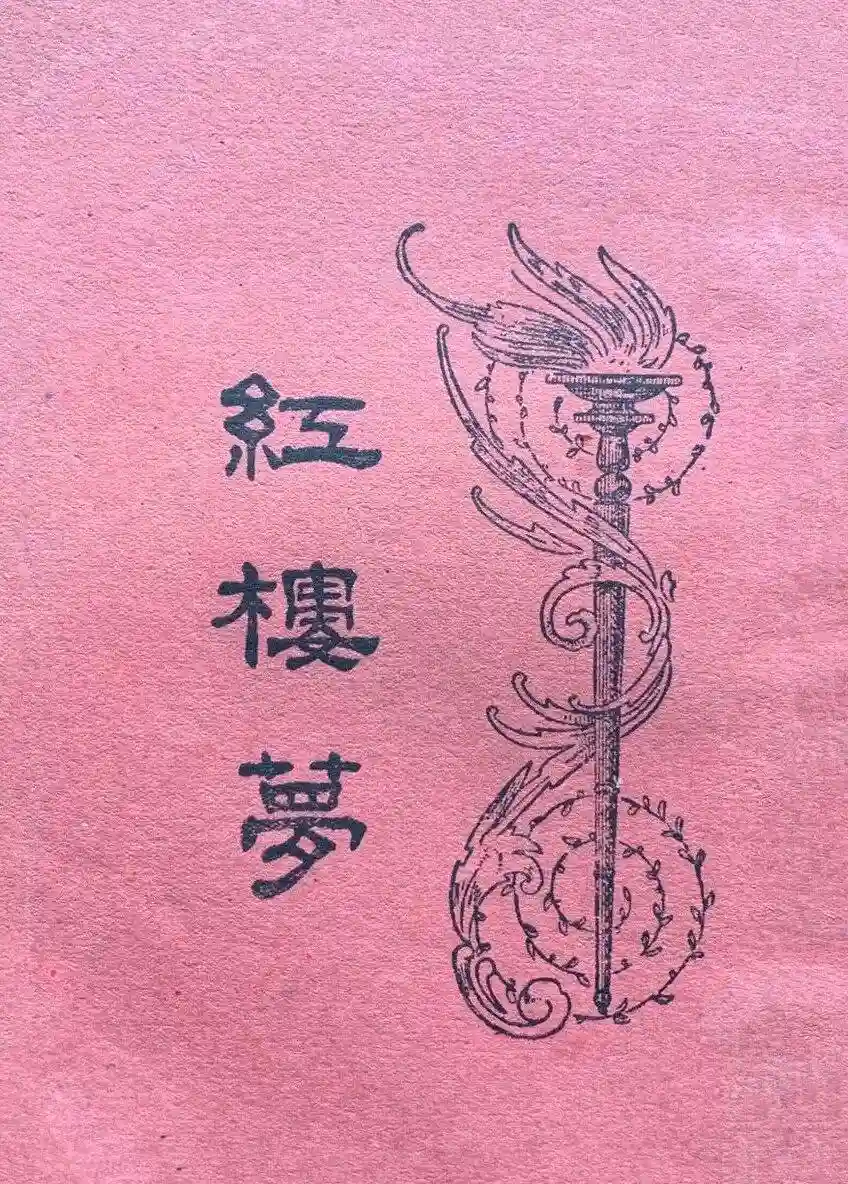 紅樓夢